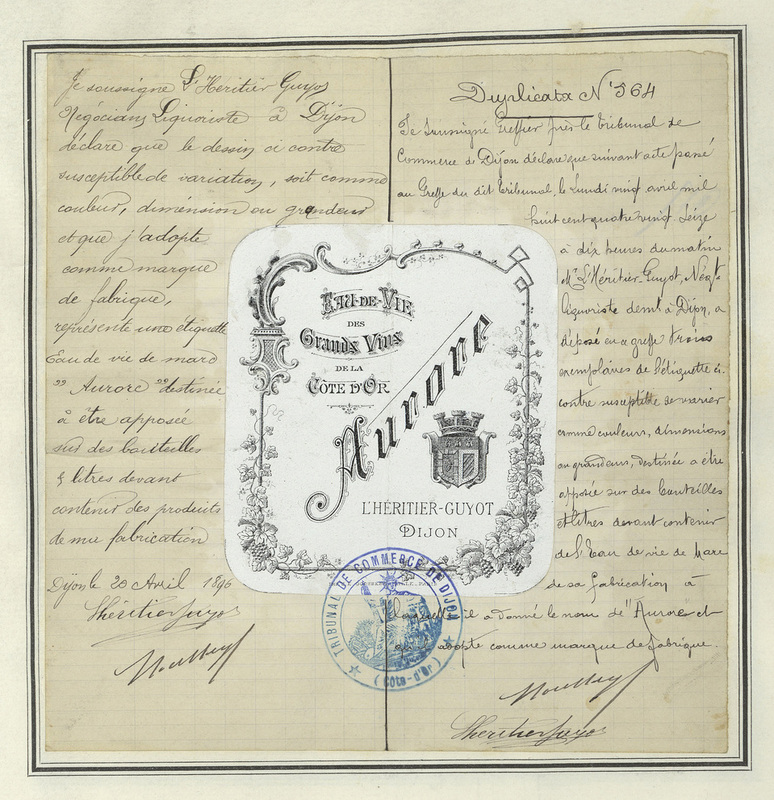 Je soussigné L'Héritier Guyot
Négociant Liquoriste à Dijon
déclare que le dessin ci contre
susceptible de variation, soit comme
couleur, dimension ou grandeur
et que j'adopte
comme marque
de fabrique,
représente une étiquette
Eau de vie de marc
"Aurore" destinée
à être apposée
sur des bouteilles
& litres devant
contenir des produits
de ma fabrication
Dijon le 20 Avril 1896
Lheritier Guyot
EAU-DE-VIE
DES
Grands Vins
DE LA
CÔTE D'OR
Aurore
L'HÉRITIER-GUYOT
DIJON
TRIBUNAL DE COMMERCE DE DIJON
(Côte-d'Or)
Duplicata N° 564
Je soussigné Greffier près le tribunal de
Commerce de Dijon déclare que suivant acte passé
au Greffe du dit tribunal, le Lundi vingt avril mil
huit cent quatre vingt Seize
à dix heures du matin
Mr L'Héritier-Guyot, Négt
liquoriste demt à Dijon, a
déposé en ce greffe trois
exemplaires de l'étiquette ci
contre susceptible de varier
comme couleurs, dimensions
ou grandeurs, destinée à être
apposée sur des bouteilles
et litres devant contenir
de l'Eau de vie de Marc
de sa fabrication à
laquelle il a donné le nom de "Aurore et
qu'il adopte comme marque de fabrique.
Lheritier Guyot